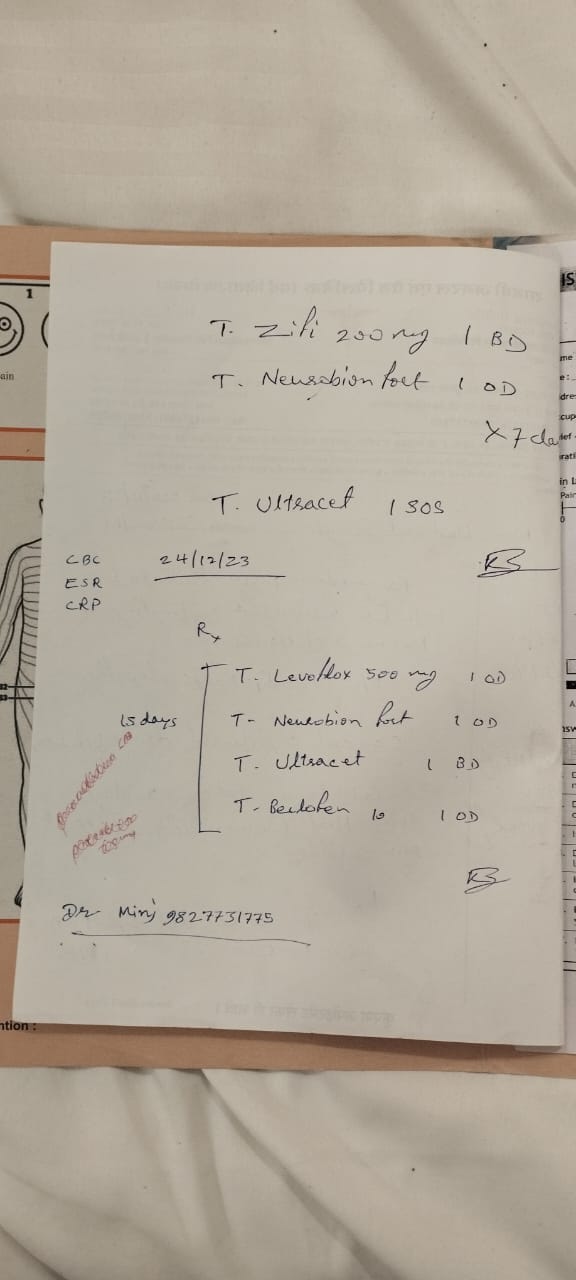 T. Zifi 200 mg 1 BD
T. Neurobion fort 1 OD
X 7 da
T. Ultracet 1 SOS
CBC
ESR
CRP
24/12/23
Rx
15 days
T- Levoflox 500 mg 1 OD
T- Neurobion fort 1 OD
T. Ultracet 1 BD
T- Beclofen 10 1 OD
Dr Minj 9827731775
1
ain
ntion :
IS
me
e:
dre
cup
ief
rati
in L
Pain
0